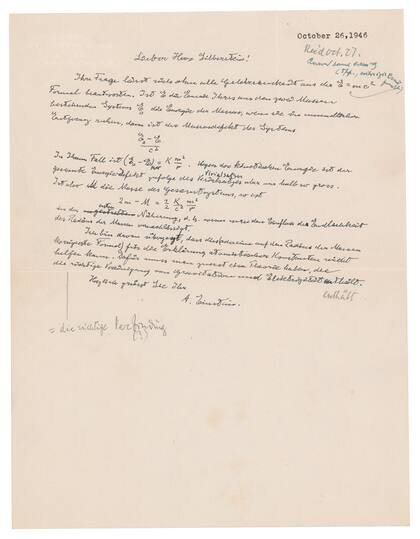 October 26, 1946
Rec'd Oct. 27.
Lieber Herr Silberstein!
Ihre Frage lässt sich ohne alle Gelehrsamkeit aus der E = mc²
Formel beantworten. Ist E die Energie Ihres aus den zwei Massen
bestehenden Systems, die Energie der Massen, wenn sie in unendlicher
Entfernung ruhen, dann ist der Massendefekt des Systems
E₀ − E
c²
In Ihrem Fall ist = K m² r. Wegen der kinetischen Energie ist der
gesamte Energiedefekt zufolge des Virialsatzes aber nur halb so gross.
Ist also M die Masse des Gesamtsystems, so ist
2m − M = 1/2 K/c² m²/r
in der ersten Näherung, d. h. wenn man den Einfluss der Endlichkeit
des Radius der Massen vernachlässigt.
Ich bin davon überzeugt, dass die auf den Radius der Massen
korrigierte Formel für die Erklärung atomistischer Konstanten nicht
helfen kann. Dafür muss man zuerst eine Theorie haben, die
die richtige Vereinigung von Gravitation und Elektrizität enthält.
enthält
Herzlich grüsst Sie Ihr
A. Einstein.
= die richtige Verbindung